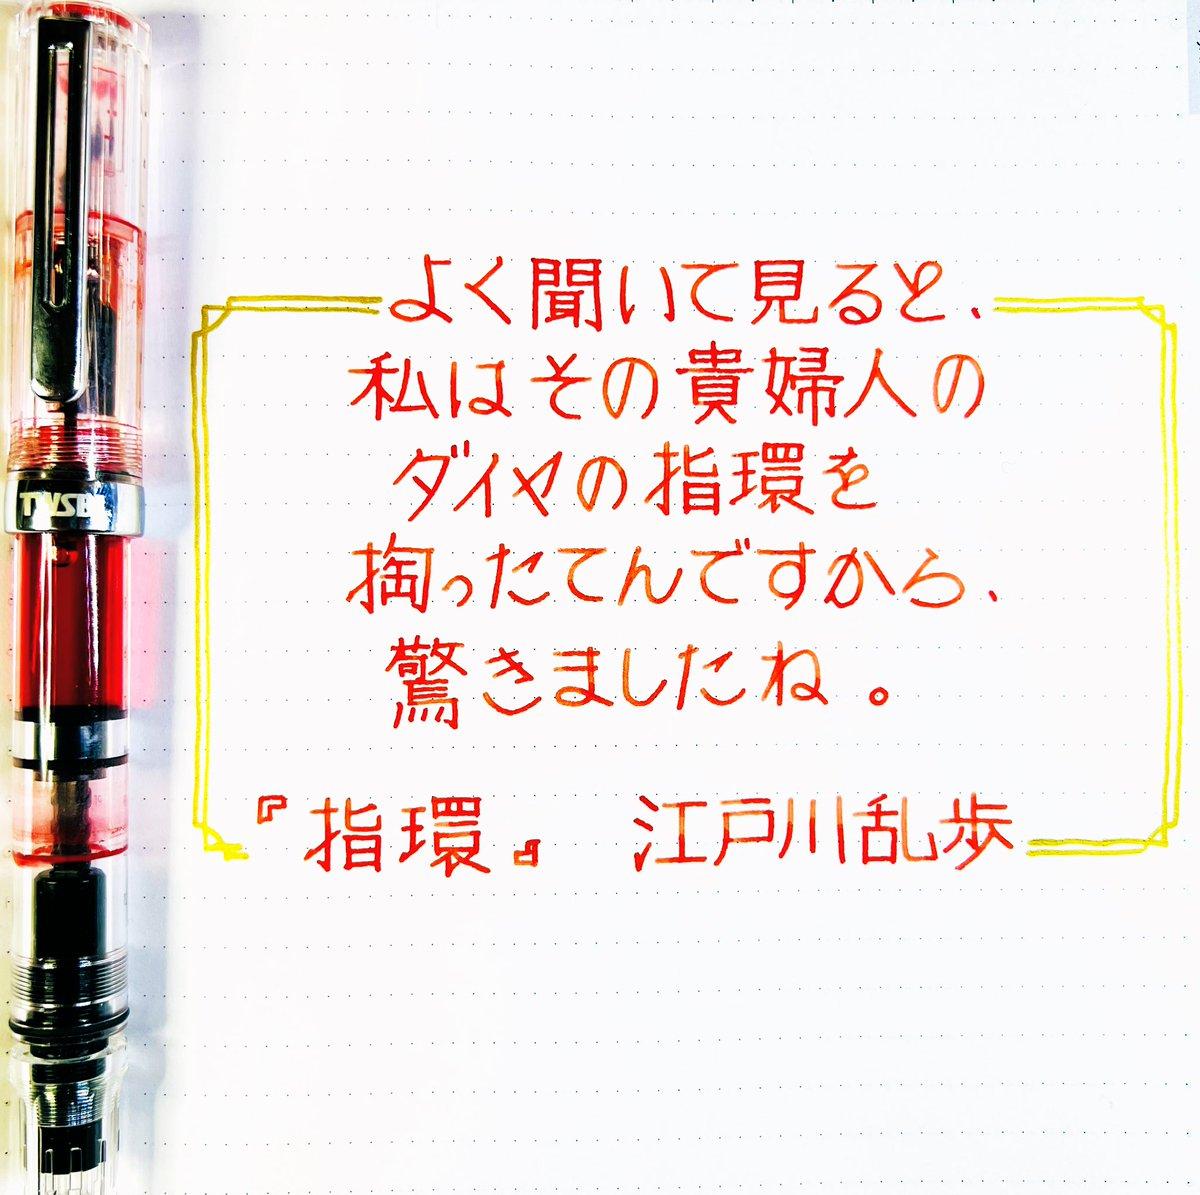 よく聞いて見ると、
私はその貴婦人の
ダイヤの指環を
掏ったてんですから、
驚きましたね。
『指環』 江戸川乱歩
TWSBI